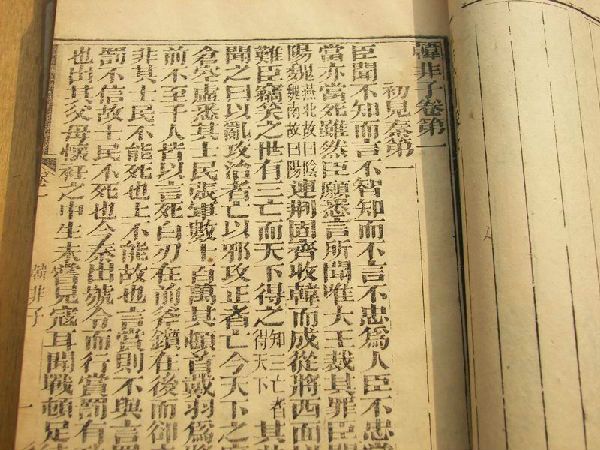 韓非子卷第一
初見秦第一
臣聞不知而言不智知而不言不忠為人臣不忠當
當亦當死雖然臣願悉言所聞唯大王裁其罪臣聞
陽魏燕北故曰陰魏南故曰陽連荊固齊收韓而成從將西面
難臣竊笑之世有三亡而天下得之知三亡者得天下其
聞之曰以亂攻治者亡以邪攻正者亡今天下之
倉空虛悉其士民張軍數十百萬其頓首戴羽為
前不至千人皆以言死白刃在前斧鑕在後而卻
非其士民不能死也上不能故也言賞則不與言
罰不信故士民不死也今秦出號令而行賞罰有
也出其父母懷衽之中生未嘗見寇耳聞戰頓足
卷一
韓非子
一